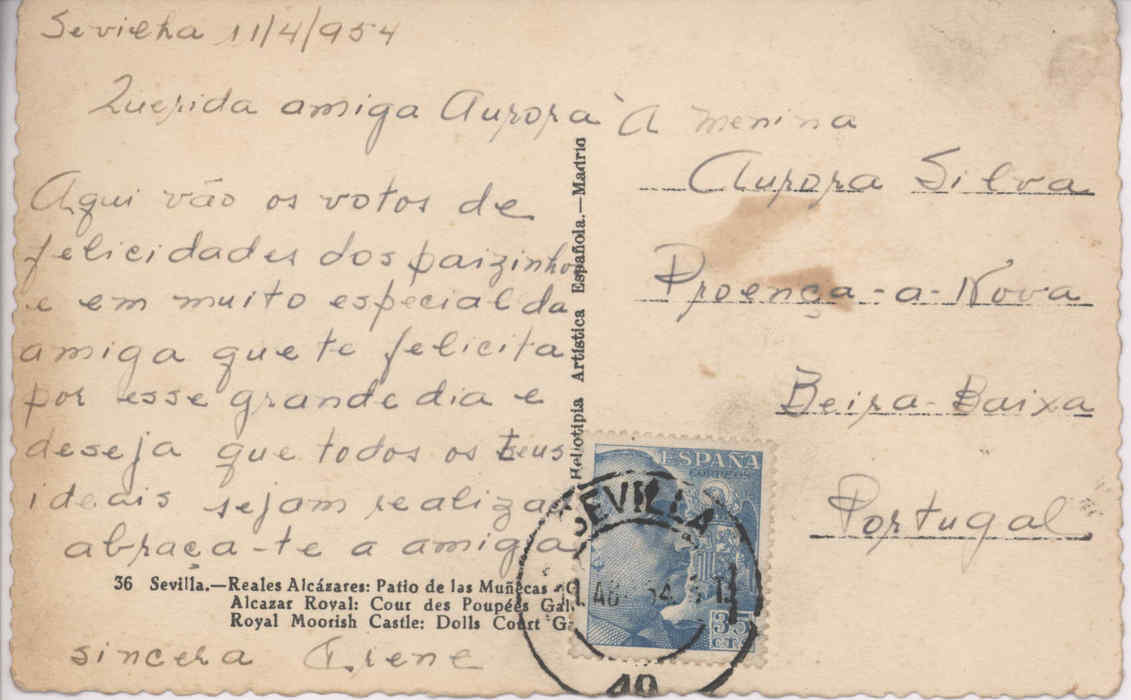 Sevilha 11/4/954
Querida amiga Aurora
Aqui vão os votos de
felicidades dos paizinhos
e em muito especial da
amiga que te felicita
por esse grande dia e
deseja que todos os teus
ideais sejam realiza
abraça-te a amiga
36 Sevilla.—Reales Alcázares: Patio de las Muñecas
Alcazar Royal: Cour des Poupées
Royal Moorish Castle: Dolls Court
sincera Irene
Heliotipia Artística Española.—Madrid
À menina
Aurora Silva
Proença-a-Nova
Beira-Baixa
Portugal
ESPAÑA
CORREOS
35
CTS
SEVILLA